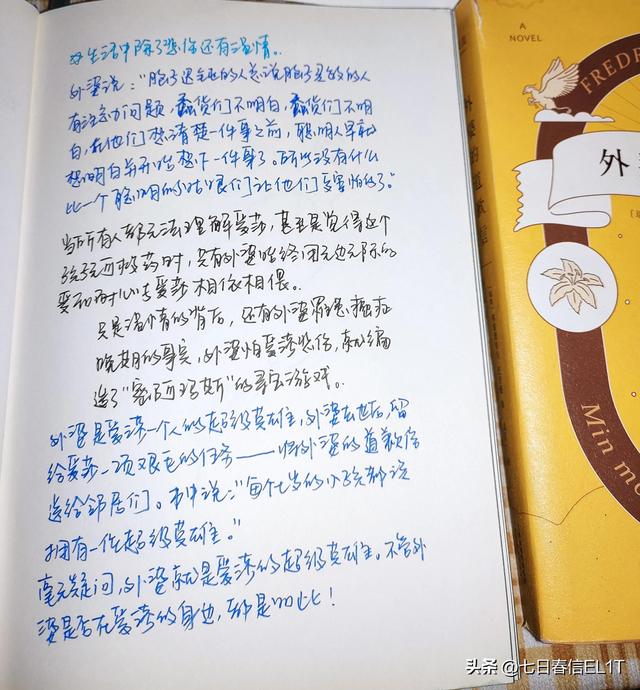 生活中除了悲伤还有温情。
外婆说：“脑子迟钝的人总说脑子灵敏的人
有注意力问题，蠢货们不明白，蠢货们不明
白，在他们想清楚一件事之前，聪明人早就
想明白并开始想下一件事了。所以没有什么
比一个聪明的小姑娘们让他们更害怕的了。”
当所有人都无法理解爱莎，甚至是觉得这个
孩子无可救药时，只有外婆始终用无边无际的
爱和耐心与爱莎相依相偎。
只是温情的背后，还有外婆罹患癌症
晚期的事实，外婆怕爱莎悲伤，就编
造了“密阿玛斯”的寻宝游戏。
外婆是爱莎一个人的超级英雄，外婆去世后，留
给爱莎一项艰巨的任务——将外婆的道歉信
送给邻居们。书中说：“每个七岁的小孩都该
拥有一位超级英雄。”
毫无疑问，外婆就是爱莎的超级英雄。不管外
婆是否在爱莎的身边，都是如此！
A
NOVEL
FREDR
外
外婆的道歉信
Min mo
头条 @七日春信EL1T